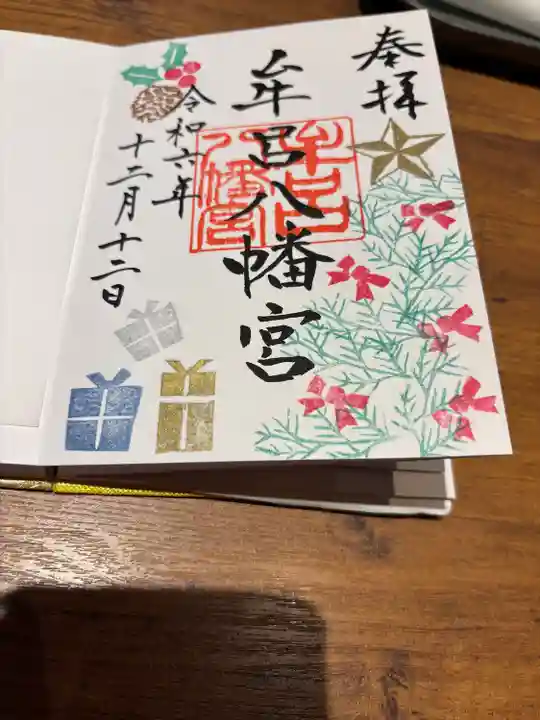 奉拝
牟呂八幡宮
牟呂
八幡宮
令和六年
十二月十二日